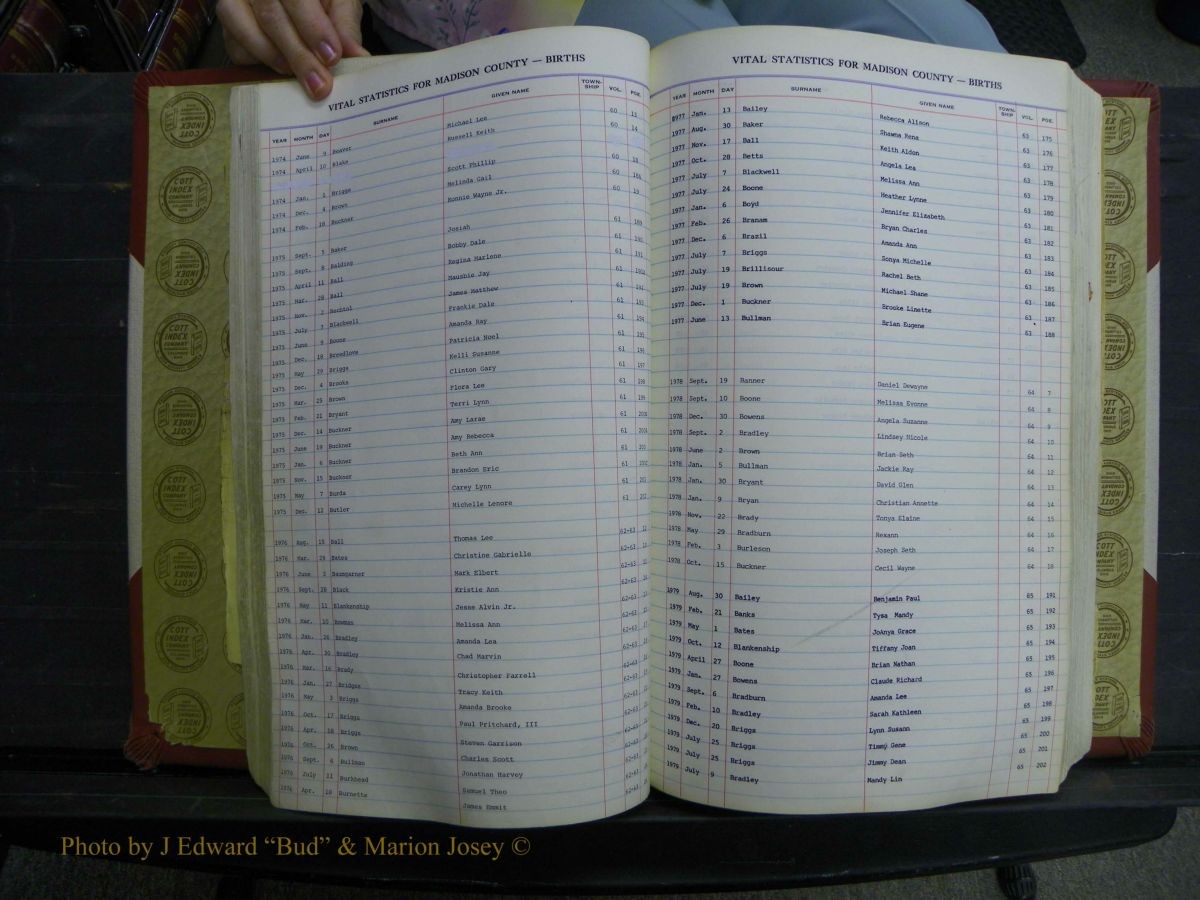 VITAL STATISTICS FOR MADISON COUNTY — BIRTHS
YEAR MONTH DAY SURNAME GIVEN NAME TOWN-SHIP VOL. PGE.
1974 June 9 Beaver Michael Lee 60 13
1974 April 10 Blake Russell Keith 60 14
1974 Jan. 1 Briggs Scott Phillip 60 18
1974 Dec. 4 Brown Melinda Gail 60
1974 Feb. 18 Buckner Ronnie Wayne Jr. 60 19
1975 Sept. Baker Josiah 61
1975 Sept. 8 Balding Bobby Dale 61
1975 April 11 Ball Regina Marlene 61
1975 Mar. 28 Ball Maushie Jay 61
1975 Nov. 2 Bechtol James Matthew 61
1975 July Blackwell Frankie Dale 61
1975 June 9 Boone Amanda Ray 61
1975 Dec. 18 Breedlove Patricia Noel 61 195
1975 May 29 Briggs Kelli Susanne 61 196
1975 Dec. 4 Brooks Clinton Gary 61 197
1975 Mar. 25 Brown Flora Lee 61 198
1975 Feb. 21 Bryant Terri Lynn 61 199
1975 Dec. 14 Buckner Amy Larae 61
1975 June 19 Buckner Amy Rebecca 61
1975 Jan. 6 Buckner Beth Ann 61
1975 Nov. 15 Buckner Brandon Eric 61
1975 May 7 Burda Carey Lynn 61
1975 Dec. 12 Butler Michelle Lenore 61
1976 Aug. 15 Ball Thomas Lee 62-63
1976 Mar. 25 Bates Christine Gabrielle 62-63
1976 June 2 Baumgarner Mark Elbert 62-63
1976 Sept. 28 Black Kristie Ann 62-63
1976 May 11 Blankenship Jesse Alvin Jr. 62-63
1976 Mar. 10 Bowman Melissa Ann 62-63
1976 Jan. 26 Bradley Amanda Lea 62-63
1976 Apr. 30 Bradley Chad Marvin 62-63
1976 Mar. 16 Brady Christopher Farrell 62-63
1976 Jan. 27 Bridges Tracy Keith 62-63
1976 May 3 Briggs Amanda Brooke 62-63
1976 Oct. 17 Briggs Paul Pritchard, III 62-63
1976 Apr. 18 Briggs Steven Garrison 62-63
1976 Oct. 26 Brown Charles Scott 62-63
1976 Sept. 4 Bullman Jonathan Harvey 62-63
1976 July 21 Burkhead Samuel Theo 62-63
1976 Apr. 18 Burnette James Emmit 62-63
VITAL STATISTICS FOR MADISON COUNTY — BIRTHS
YEAR MONTH DAY SURNAME GIVEN NAME TOWN-SHIP VOL. PGE.
1977 Jan. 13 Bailey Rebecca Alison 63 175
1977 Aug. 30 Baker Shawna Rena 63 176
1977 Nov. 17 Ball Keith Aldon 63 177
1977 Oct. 28 Betts Angela Lea 63 178
1977 July 7 Blackwell Melissa Ann 63 179
1977 July 24 Boone Heather Lynne 63 180
1977 Jan. 6 Boyd Jennifer Elizabeth 63 181
1977 Feb. 26 Branam Bryan Charles 63 182
1977 Dec. 6 Brazil Amanda Ann 63 183
1977 July 7 Briggs Sonya Michelle 63 184
1977 July 19 Brillisour Rachel Beth 63 185
1977 July 19 Brown Michael Shane 63 186
1977 Dec. 1 Buckner Brooke Linette 63 187
1977 June 13 Bullman Brian Eugene 63 188
1978 Sept. 19 Banner Daniel Dewayne 64 7
1978 Sept. 10 Boone Melissa Evonne 64 8
1978 Dec. 30 Bowens Angela Suzanne 64 9
1978 Sept. 2 Bradley Lindsey Nicole 64 10
1978 June 2 Brown Brian Seth 64 11
1978 Jan. 5 Bullman Jackie Ray 64 12
1978 Jan. 30 Bryant David Glen 64 13
1978 Jan. 9 Bryan Christian Annette 64 14
1978 Nov. 22 Brady Tonya Elaine 64 15
1978 May 29 Bradburn Rexann 64 16
1978 Feb. 3 Burleson Joseph Seth 64 17
1978 Oct. 15 Buckner Cecil Wayne 64 18
1979 Aug. 30 Bailey Benjamin Paul 65 191
1979 Feb. 21 Banks Tysa Mandy 65 192
1979 May 1 Bates JoAnya Grace 65 193
1979 Oct. 12 Blankenship Tiffany Joan 65 194
1979 April 27 Boone Brian Nathan 65 195
1979 Jan. 27 Bowens Claude Richard 65 196
1979 Sept. 6 Bradburn Amanda Lee 65 197
1979 Feb. 10 Bradley Sarah Kathleen 65 198
1979 Dec. 20 Briggs Lynn Susann 65 199
1979 July 25 Briggs Timmy Gene 65 200
1979 July 25 Briggs Jimmy Dean 65 201
1979 July 9 Bradley Mandy Lin 65 202
COTT INDEX COMPANY
Photo by J Edward “Bud” & Marion Josey ©